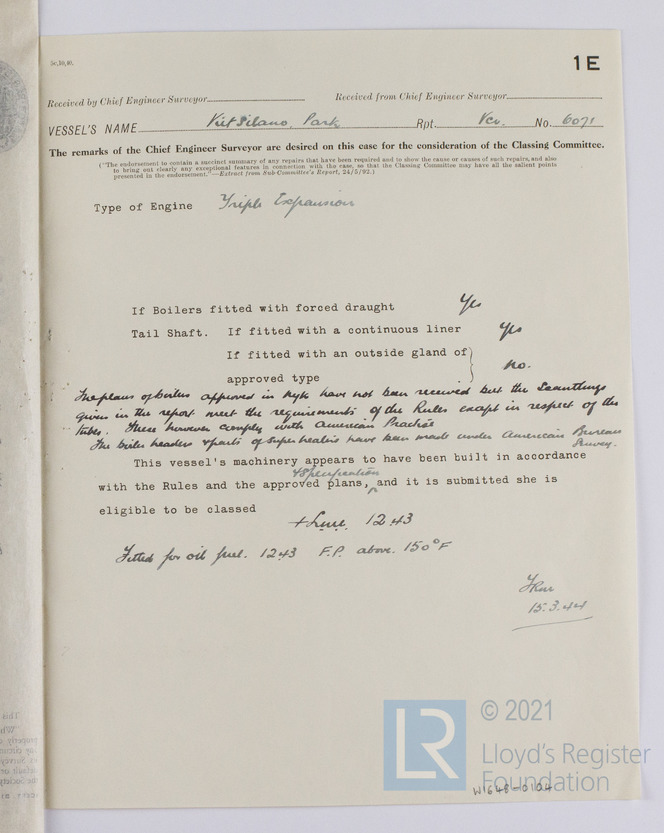 5c,10,40.
1E
Received by Chief Engineer Surveyor
Received from Chief Engineer Surveyor
VESSEL'S NAME Kitsilano Park Rpt. Vcr. No. 6071
The remarks of the Chief Engineer Surveyor are desired on this case for the consideration of the Classing Committee.
("The endorsement to contain a succinct summary of any repairs that have been required and to show the cause or causes of such repairs, and also
to bring out clearly any exceptional features in connection with the case, so that the Classing Committee may have all the salient points
presented in the endorsement."—Extract from Sub-Committee's Report, 24/5/92.)
Type of Engine Triple Expansion
If Boilers fitted with forced draught Yes
Tail Shaft. If fitted with a continuous liner Yes
If fitted with an outside gland of
approved type no.
The plans of boilers approved in have not been received but the Scantlings
given in the report meet the requirements of the Rules except in respect of the
tubes. These however comply with American Practice
The boiler headers & parts of Superheaters have been made under American Bureau
Survey.
This vessel's machinery appears to have been built in accordance
with the Rules and the approved plans, & Specification and it is submitted she is
eligible to be classed
+ L.M.C. 12.43
Fitted for oil fuel. 12.43 F.P. above. 150°F
15.3.44
© 2021
LR
Lloyd's Register
Foundation
W1648-0104